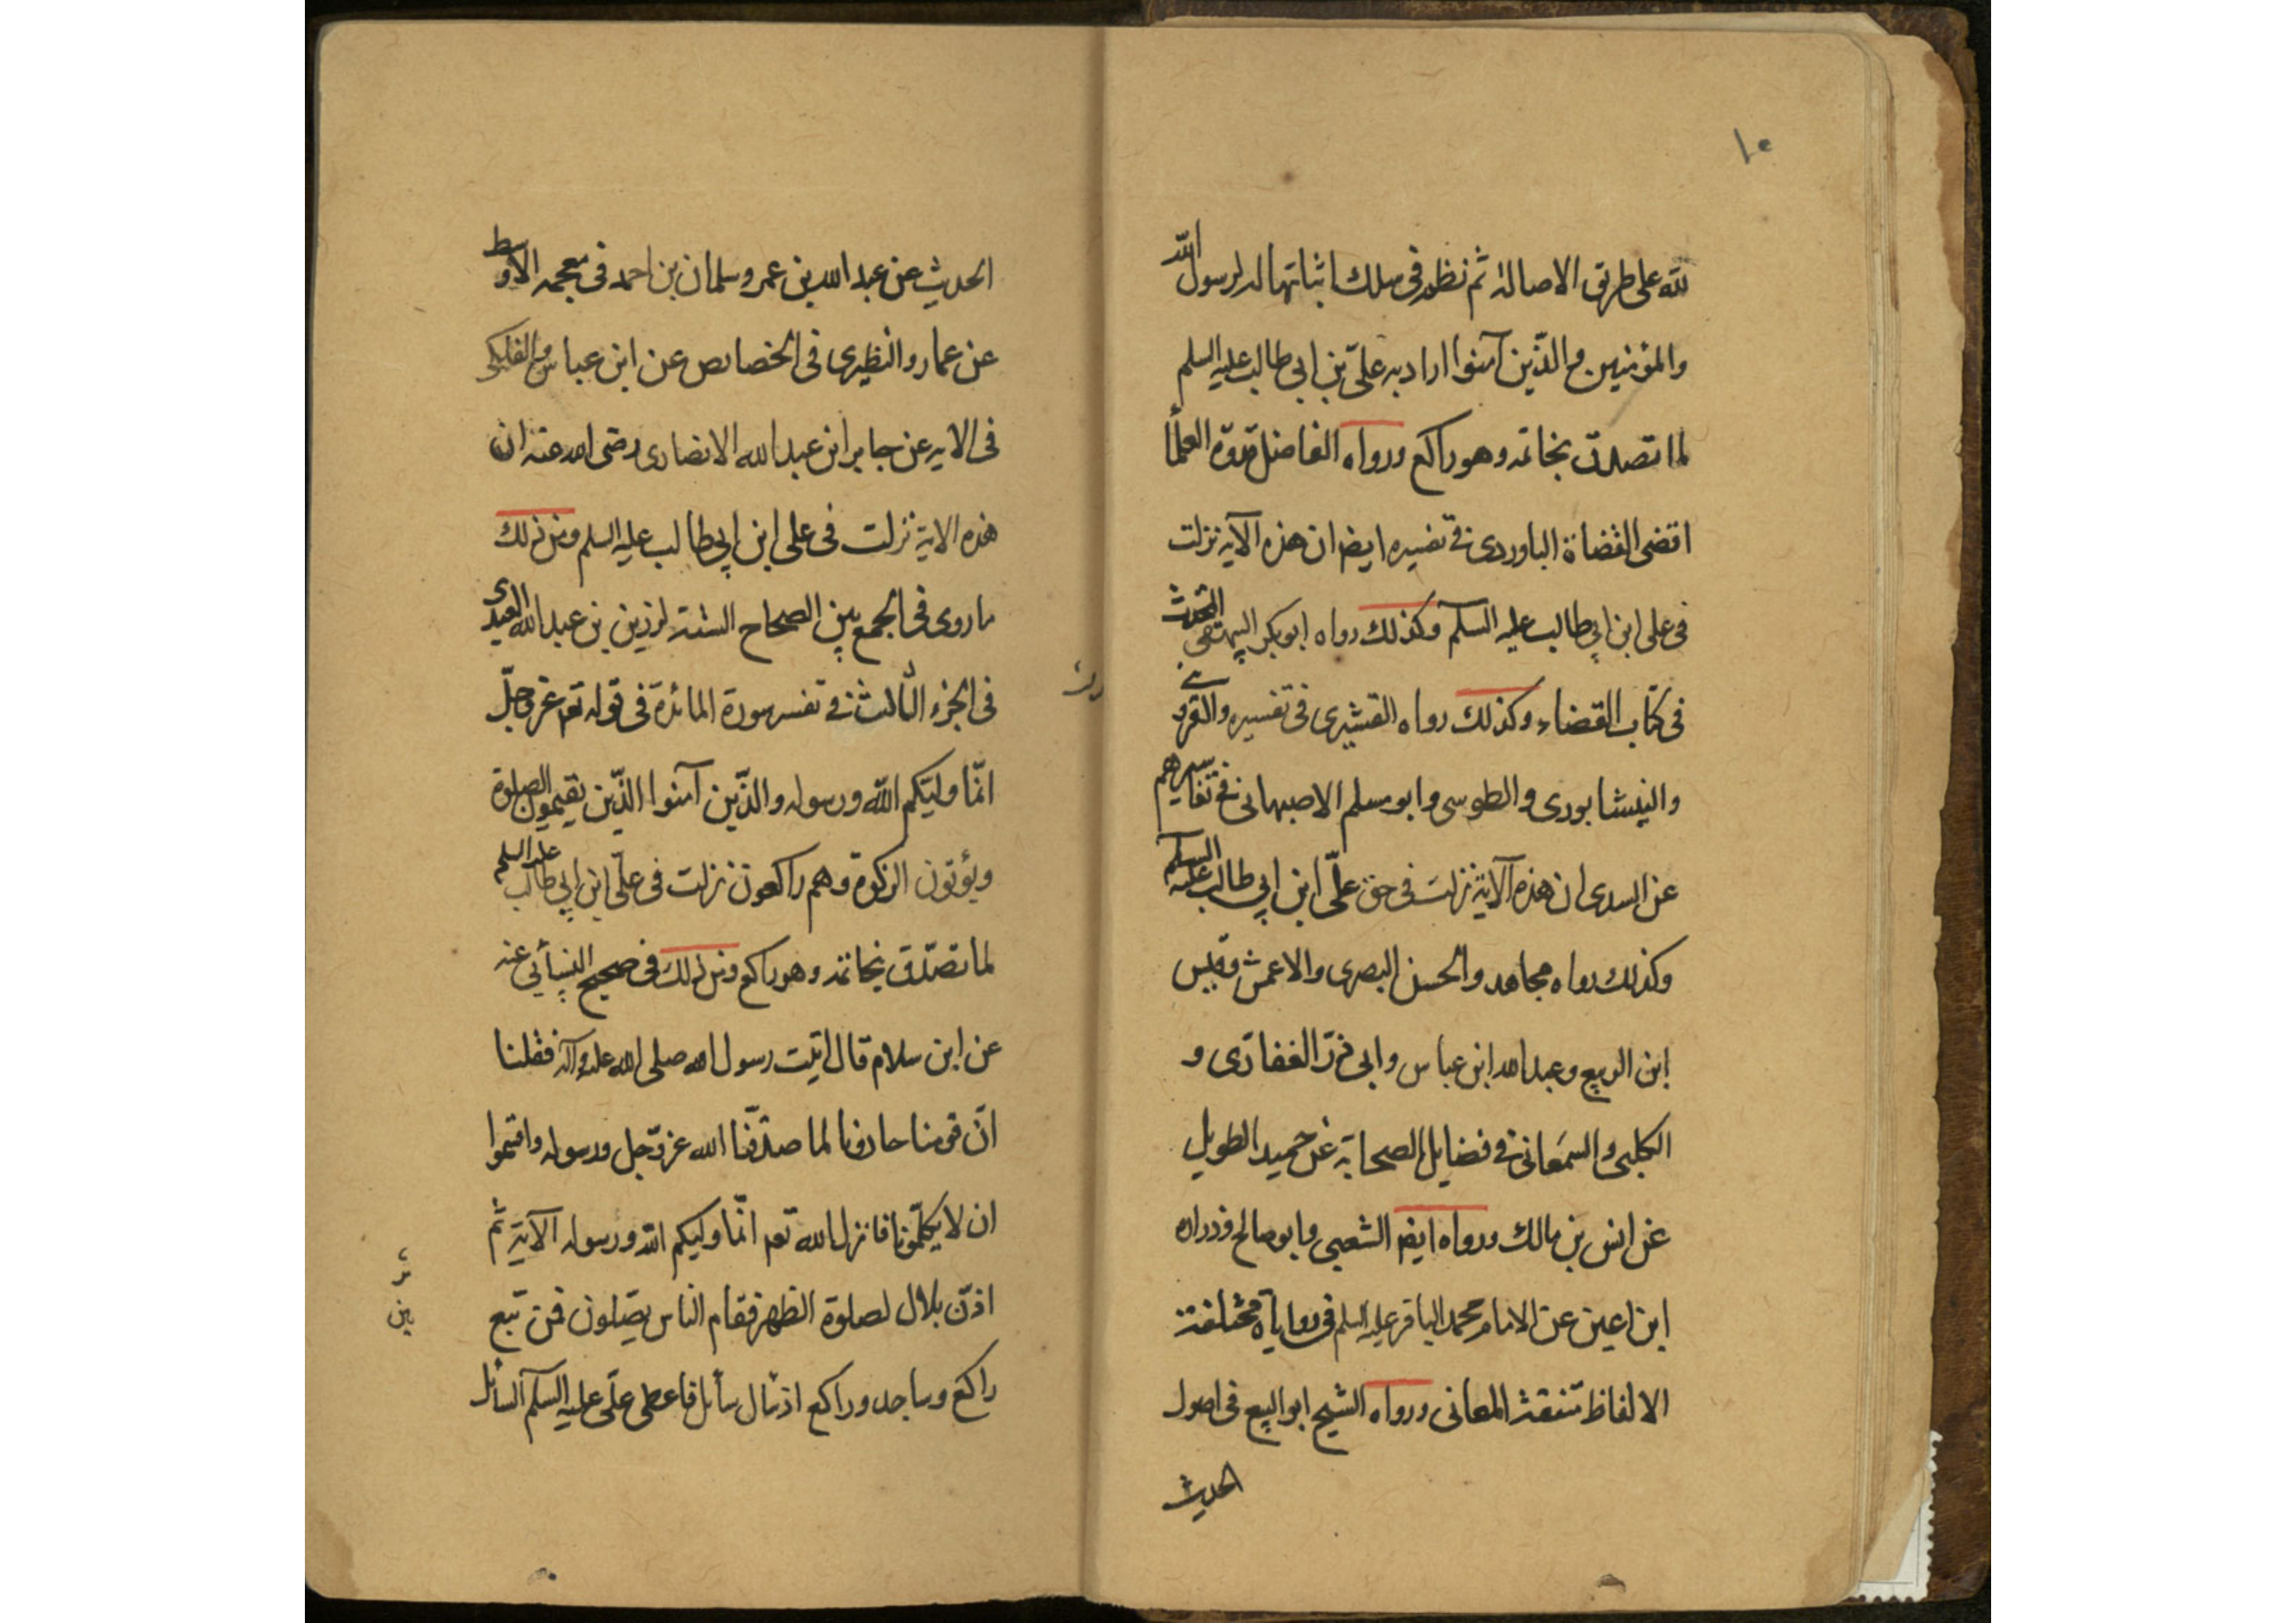 ١٠
لله على طريق الاصالة ثم نظم في سلك اثباتها له لرسول الله
والمؤمنين والذّين آمنوا اراد به علىّ بن ابي طالب عليه السلم
لما تصدق بخاتمه وهو راكع ورواه الفاضل قدوة العلمأ
اقضى القضاة الباوردى فى تفسيره ايضا ان هذه الآيه نزلت
فى على ابن ابي طالب عليه السلم وكذلك رواه ابو بكر البيهقى المحدث
فى كتاب القضاء وكذلك رواه القشيرى فى تفسيره والقزوينى
والنيشابورى والطوسى وابو مسلم الاصبهانى فى تفاسيرهم
عن السدى ان هذه الآية نزلت فى حق علىّ ابن ابي طالب عليه السلم
وكذلك رواه مجاهد والحسن البصرى والاعمش وقيس
ابن الربيع وعبد الله ابن عباس وابى ذرّ الغفارى و
الكلبى والسمعانى فى فضايل الصحابة عن حميد الطويل
عن انس بن مالك ورواه ايضا الشعبى وابو صالح وزراره
ابن اعين عن الامام محمد الباقر عليه السلم فى رواياة مختلفة
الالفاظ متفقة المعانى ورواه الشيخ ابو البيع فى اصول
الحديث
الحديث عن عبد الله بن عمر وسلمان بن احمد فى معجمه الاوسط
عن عمار والنظيرى فى الخصايص عن ابن عباس والفلكى
فى الايه عن جابر ابن عبد الله الانصارى رضى الله عنه ان
هذه الاية نزلت فى على ابن ابي طالب عليه السلم ومن ذلك
ما روى فى الجمع بين الصحاح الستة لرزين بن عبد الله العبدى
فى الجزء الثالث فى تفسر سورة المائدة فى قوله تعم عز وجلّ
انّما وليّكم اللّه ورسوله والذّين آمنوا الذّين يقيمون الصلوة
ويؤتون الزكوة وهم راكعون نزلت فى علىّ ابن ابي طالب عليه السلم
لما تصدّق بخاتمه وهو راكع ومن ذلك فى صحيح النسأئي عنه
عن ابن سلام قال اتيت رسول الله صلى الله عليه وآله فقلنا
انّ قومنا حادونا لما صدّقنا الله عزّ وجل ورسوله واقسموا
ان لا يكلّمونا فانزل الله تعم انّما وليكم الله ورسوله الآية ثم
اذّن بلال لصلوة الظهر فقام الناس يصّلون فمن تبع
راكع وساجد وراكع اذ سال سأئل فاعطى علىّ عليه السلم السأئل